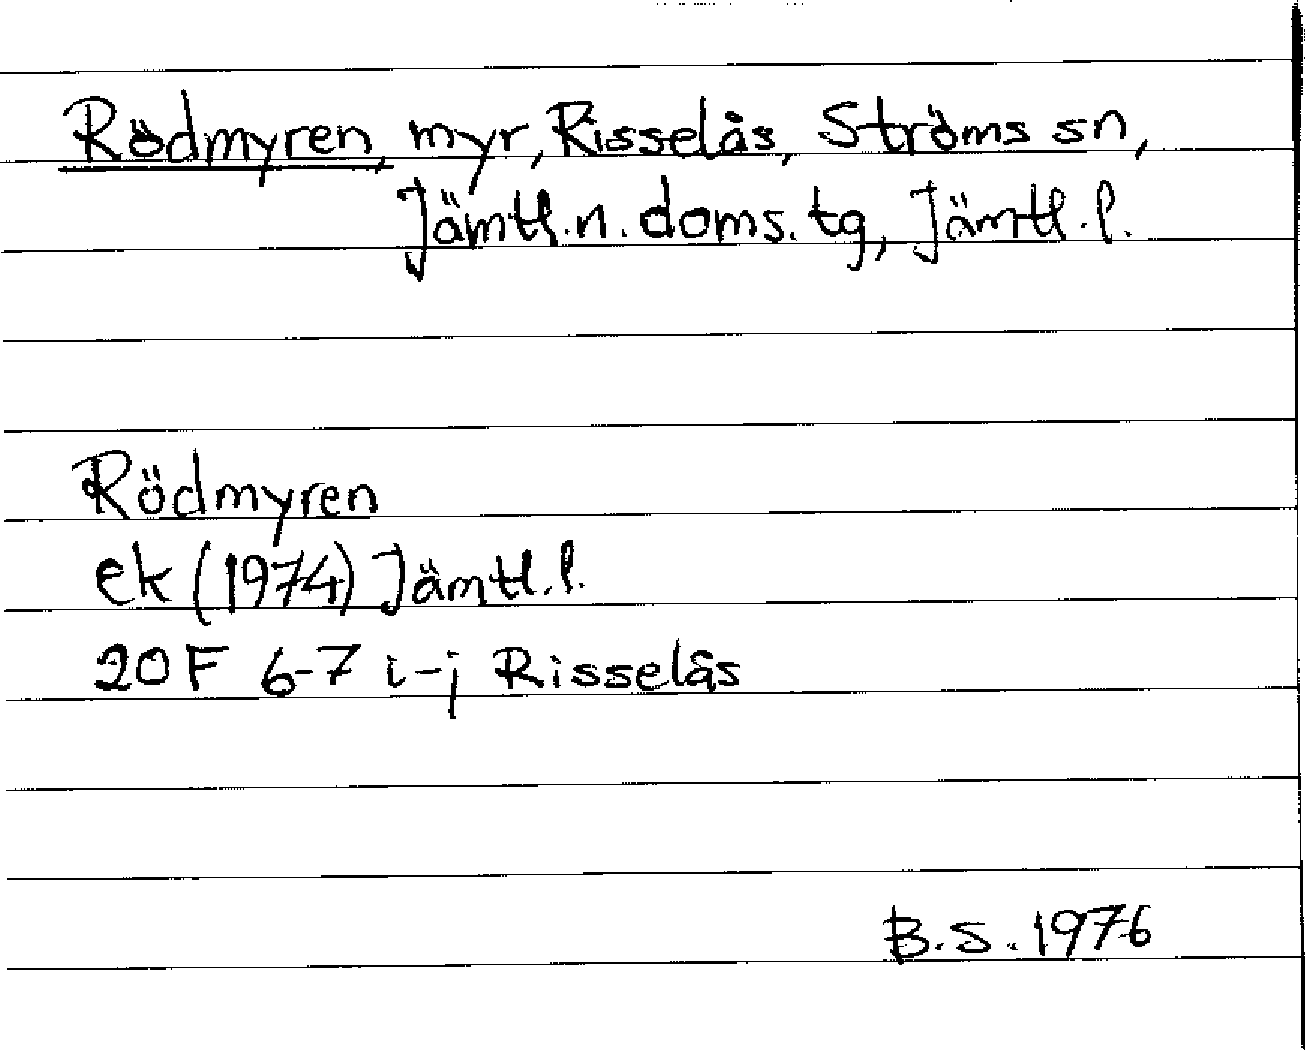 Rödmyren, myr, Risselås, Ströms sn,
Jämtl.n. doms. tg, Jämtl. l.
Rödmyren
ek (1974) Jämtl. l.
20 F 6-7 i-j Risselås
B.S. 1976